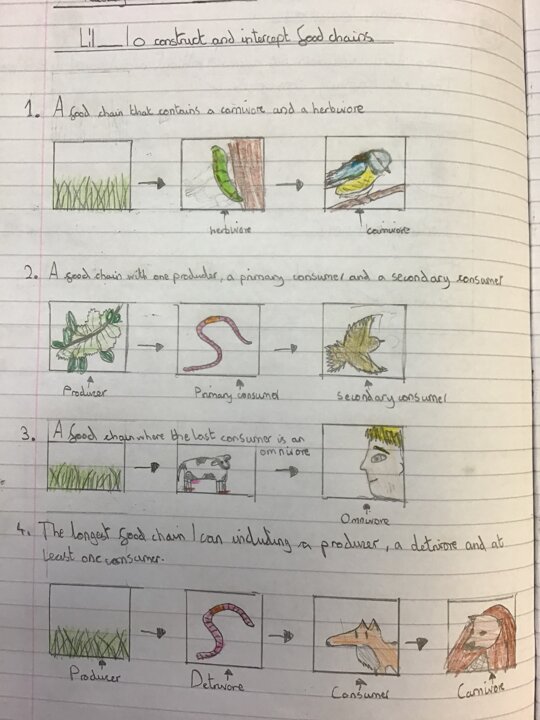 o construct and intercept food chains
1. A food chain that contains a carnivore and a herbivore
herbivore
carnivore
2. A food chain with one producer, a primary consumer and a secondary consumer
Producer
Primary consumer
secondary consumer
3. A food chain where the last consumer is an
omnivore
Omnivore
4. The longest food chain I can including a producer, a detrivore and at
least one consumer.
Producer
Detrivore
Consumer
Carnivore